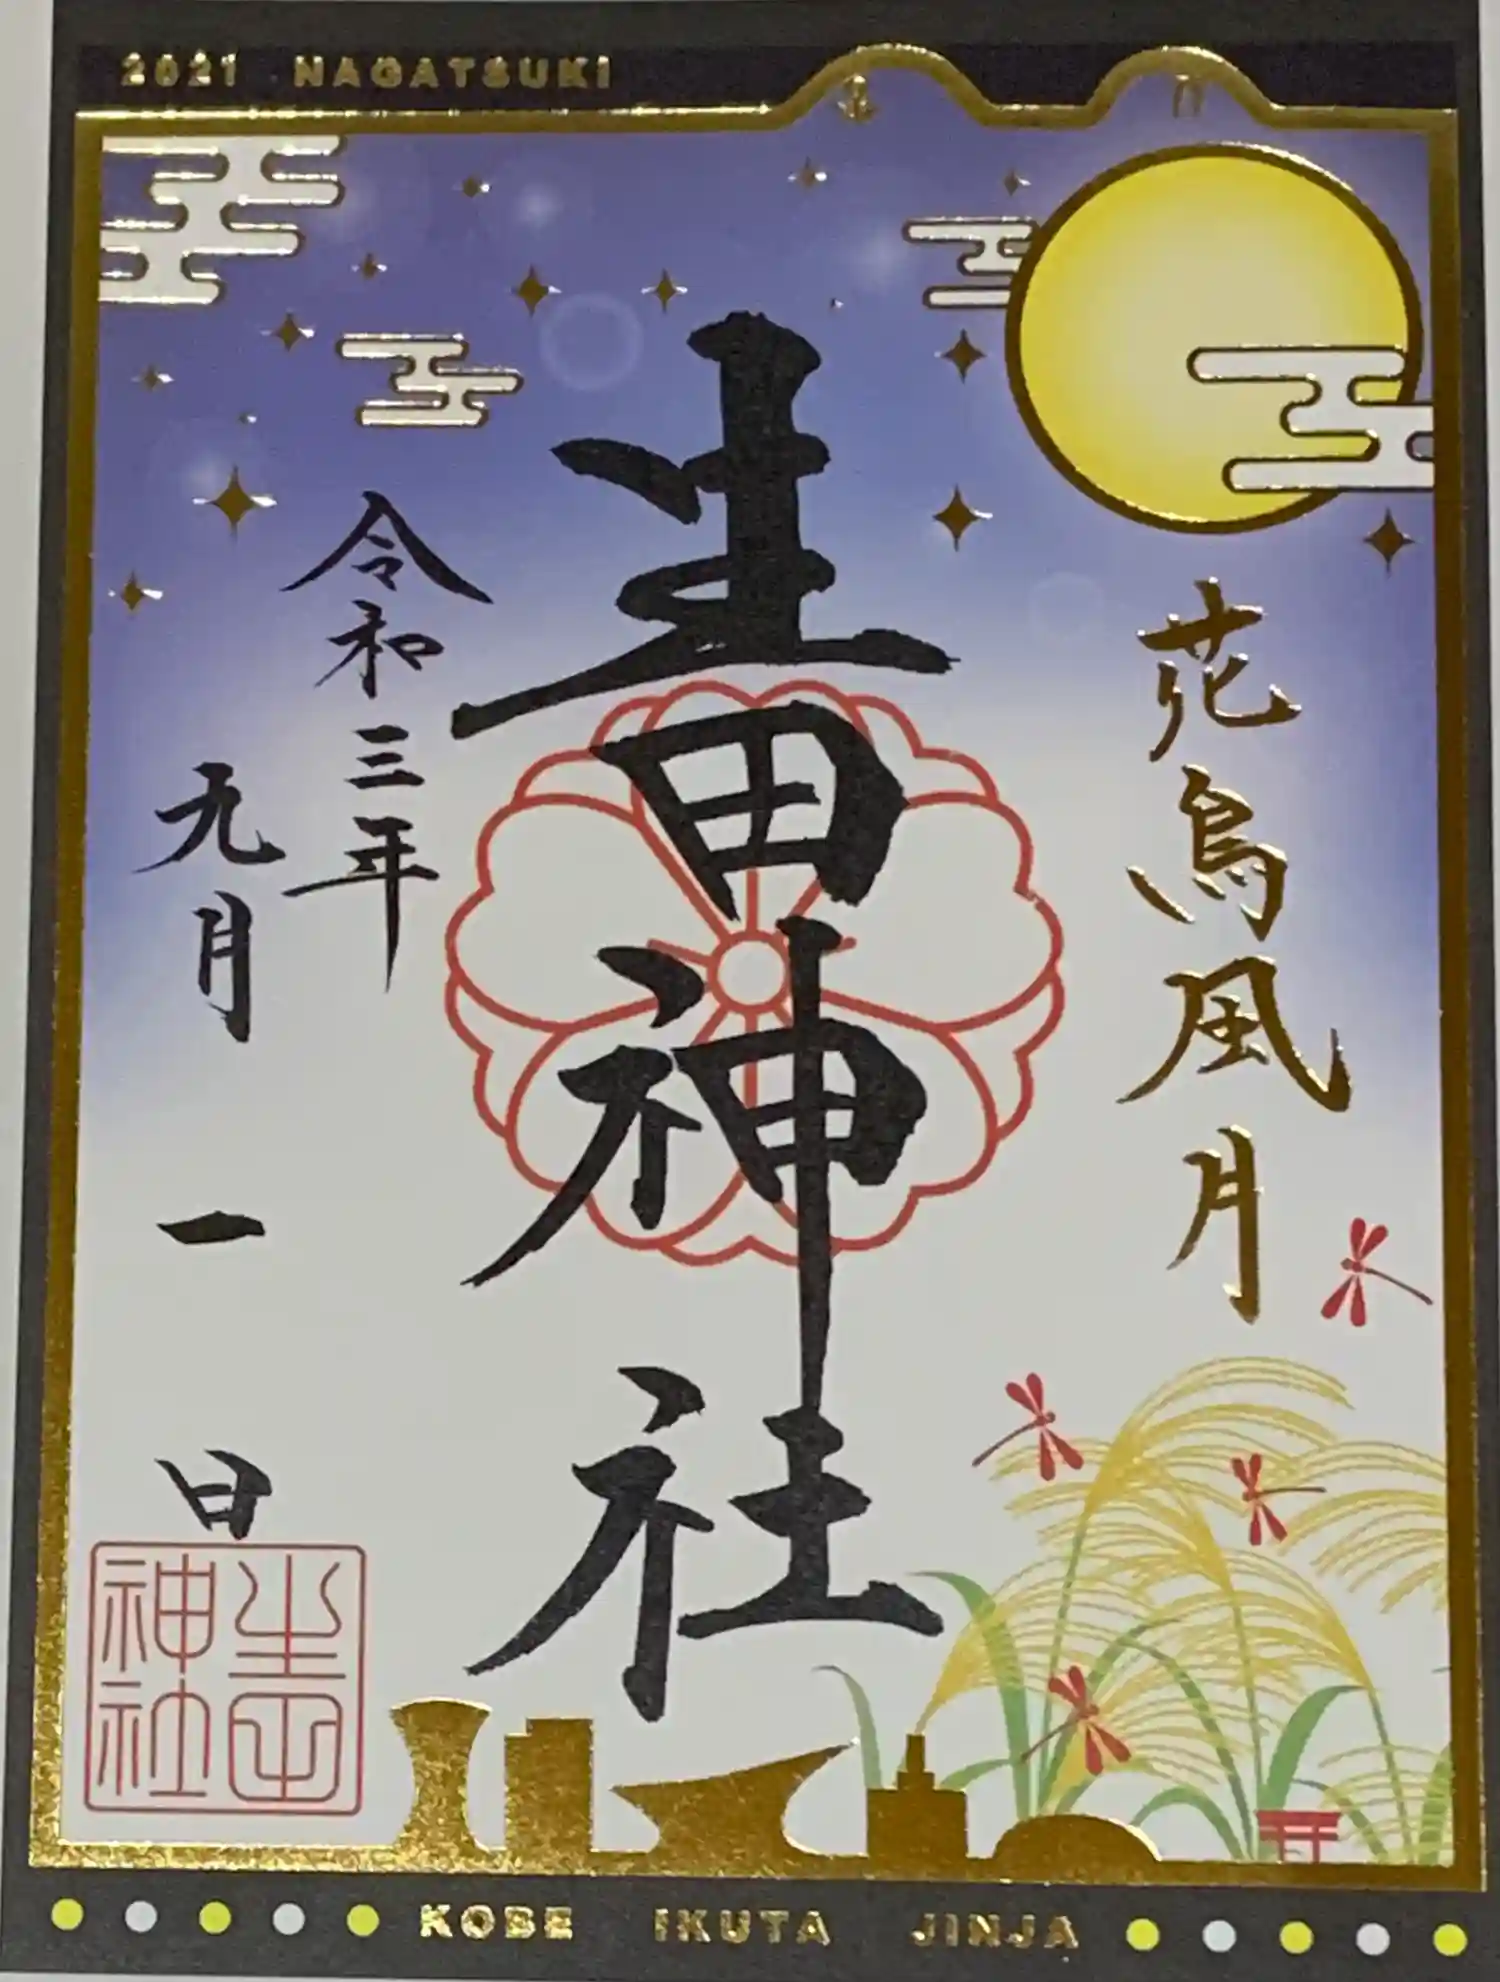 2021 NAGATSUKI
花鳥風月
生田神社
令和三年
九月一日
生田
神社
KOBE IKUTA JINJA